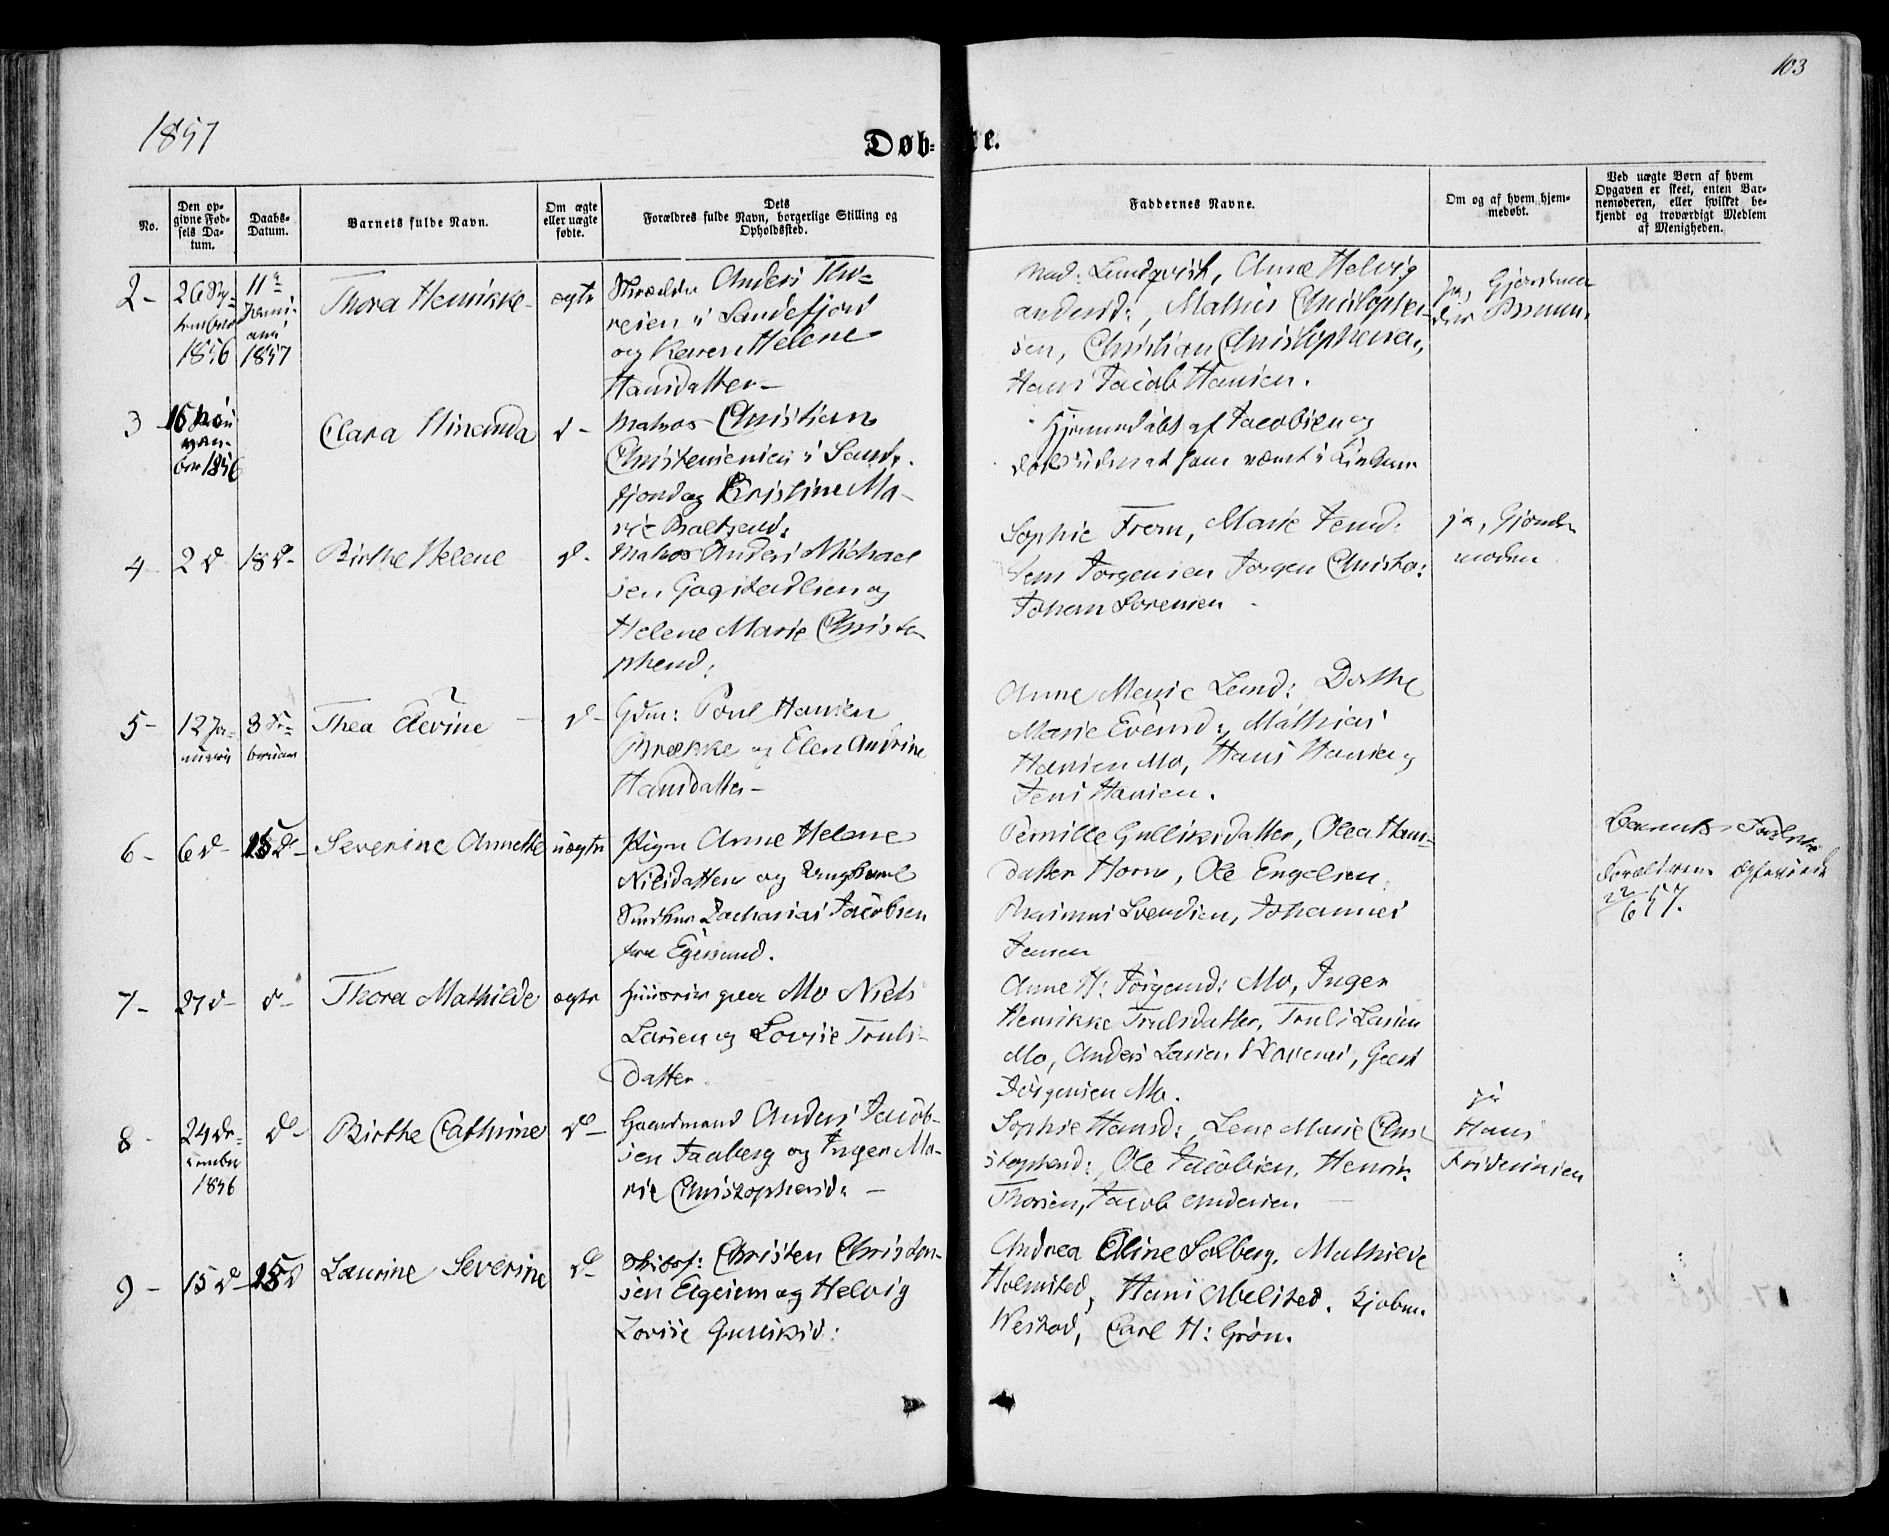 103
1857
Døb-
te.
No.
Den op-
givne Fød-
sels Da-
tum.
Daabs-
Datum.
Barnets fulde Navn.
Om ægte
eller uægte
fødte.
Dets
Forældres fulde Navn, borgerlige Stilling og
Opholdssted.
Faddernes Navne.
Om og af hvem hjem-
medøbt.
Ved uægte Børn af hvem
Opgaven er skeet, enten Bar-
nemoderen, eller hvilket be-
kjendt og troværdigt Medlem
af Menigheden.
2 -
26 Sep-
tember
1856
11te
Janu-
ari
1857
Thora Henrikke
ægte
Skrædder Anders Tho-
resen i Sandefjord
og Karen Helene
Hansdatter -
Mad: Lundqvist, Anne Helvig
Andersd:, Mathis Christopher-
sen, Christian Christophersen,
Hans Jacob Hansen.
ja, Gjordemo-
der
3 -
16 No-
vem-
ber 1856
Clara Minanda
d -
Matros Christian
Christensen i Sande-
fjord og Kristine Ma-
rie
Hjemmedøbt af Jacobsen og
4
2 d
18 d -
Birthe Helene
d -
Matros Anders Michael
sen Gogstadlien og
Helene Marie Christo-
phersd:
Sophie Trom, Marie Jensd:
Jens Jørgensen Jørgen Christo:
Johan Sorensen -
ja, Gjorde-
moder
5 -
12 Ja-
nuari
8 Fe-
bruar
Thea Elevine
d -
Gdm: Poul Hansen
Brække og Elen Andrine
Hansdatter -
Anne Marie Lund: Dorthe
Marie Evensd:, Mathias
Hansen Mo, Hans Hansen og
Jens Hansen.
6 -
6 d -
15 d -
Severine Annethe
uægte
Pigen Anne Helene
Nilsdatter og Ungkarl
Snedker Zacharias Jacobsen
fra Egersund.
Pernille Gulliksdatter, Olea Hans-
datter Horn, Ole Engelsen,
Rasmus Svendsen, Johannes
Jensen
Barnets
Forældre
7 -
27 d -
d -
Thora Mathilde
ægte
Huusmd paa Mo Niels
Larsen og Lovise Truls-
datter.
Anne H: Jørgensd: Mo, Inger
Henrikke Trulsdatter, Truls Larsen
Mo, Anders Larsen
Jørgensen Mo.
8 -
24 De-
cember
1856
d -
Birthe Cathrine
d -
Gaardmand Anders Jacob-
sen Fauberg og Inger Ma-
rie Christophersd: -
Sophie Hansd:, Lene Marie Chri-
stophersd:, Ole Jacobsen, Henrik
Thorsen, Jacob Andersen
ja
Hans
Fridericksen
9 -
15 d -
15 d
Laurine Severine
d -
Skibsf: Christen Christen-
sen Elgesem og Helvig
Lovise Gulliksd:
Andrea Eline Solberg, Mathilde
Holmsted, Hans Abelsted, Kjøbm.
Wested, Carl H: Grøn.